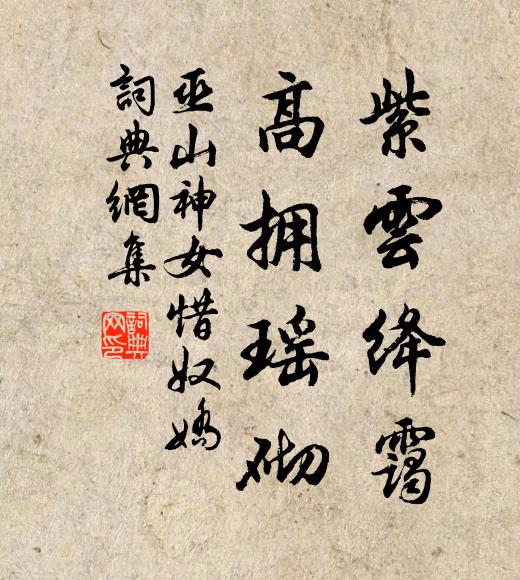 紫雲絳靄
高拥瑶砌
巫山神女惜奴嬌
詞典網集
詞典网印